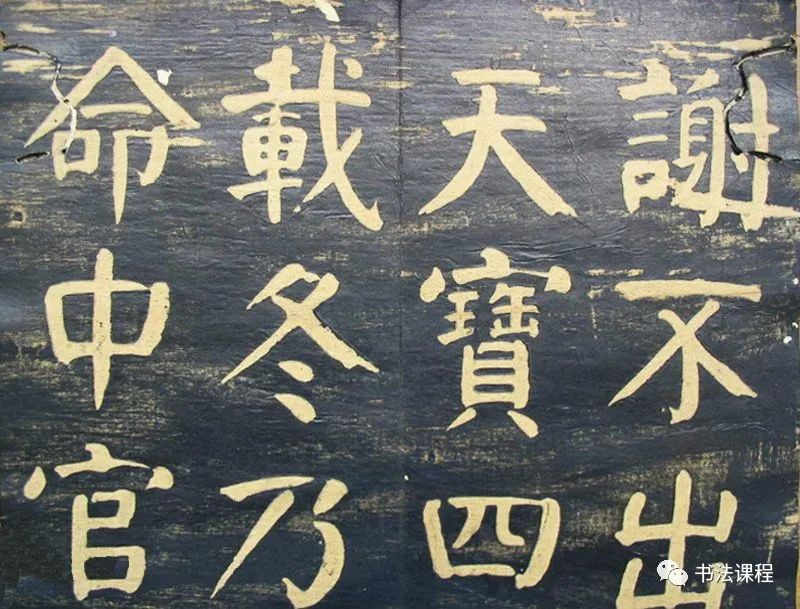 謝不出
天寶四
載冬乃
命中官
书法课程